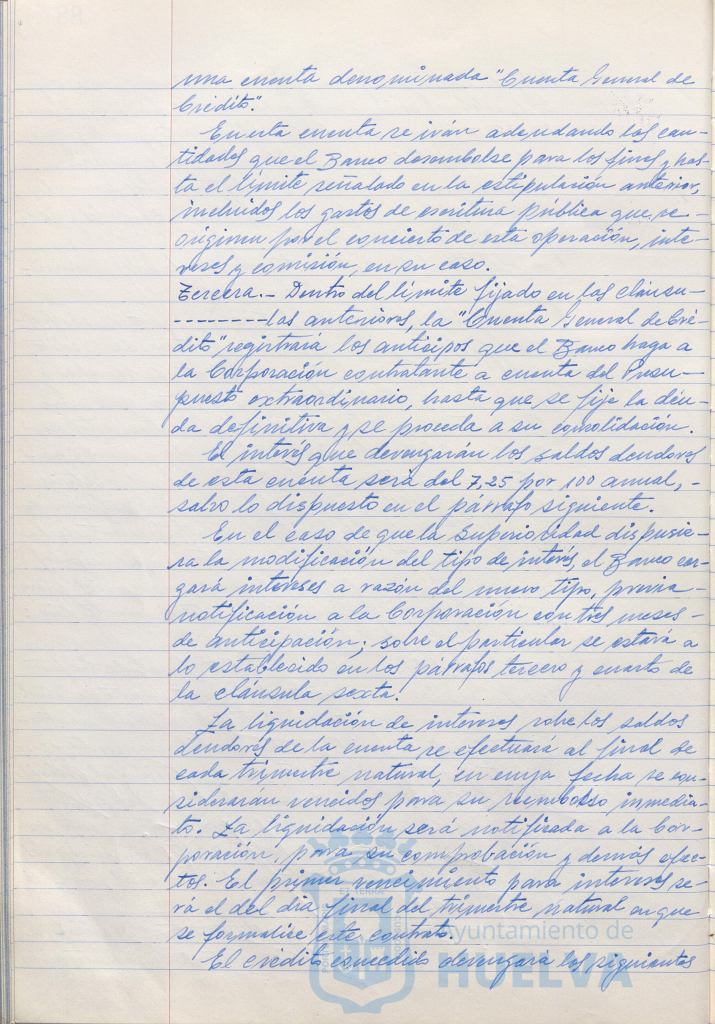 una cuenta denominada "Cuenta General de
Crédito".
En esta cuenta se irán adeudando las can-
tidades que el Banco desembolse para los fines y has-
ta el límite señalado en la estipulación anterior,
incluidos los gastos de escritura pública que se
originen por el concierto de esta operación, inte-
reses y comisión, en su caso.
Tercera.- Dentro del límite fijado en las cláusu-
--------las anteriores, la "Cuenta General de Cré-
dito" registrará los anticipos que el Banco haga a
la Corporación contratante a cuenta del Presu-
puesto extraordinario, hasta que se fije la deu-
da definitiva y se proceda a su consolidación.
El interés que devengarán los saldos deudores
de esta cuenta será del 7,25 por 100 anual, -
salvo lo dispuesto en el párrafo siguiente.
En el caso de que la Superioridad dispusie-
ra la modificación del tipo de interés, el Banco car-
gará intereses a razón del nuevo tipo, previa-
notificación a la Corporación con tres meses-
de anticipación; sobre el particular se estará a
lo establecido en los párrafos tercero y cuarto de
la cláusula sexta.
La liquidación de intereses sobre los saldos
deudores de la cuenta se efectuará al final de
cada trimestre natural, en cuya fecha se con-
siderarán vencidos para su reembolso inmedia-
to. La liquidación será notificada a la Cor-
poración, para su comprobación y demás efec-
tos. El primer vencimiento para intereses se-
rá el del día final del trimestre natural en que
se formalice este contrato.
El crédito concedido devengará los siguientes
Ayuntamiento de
HUELVA